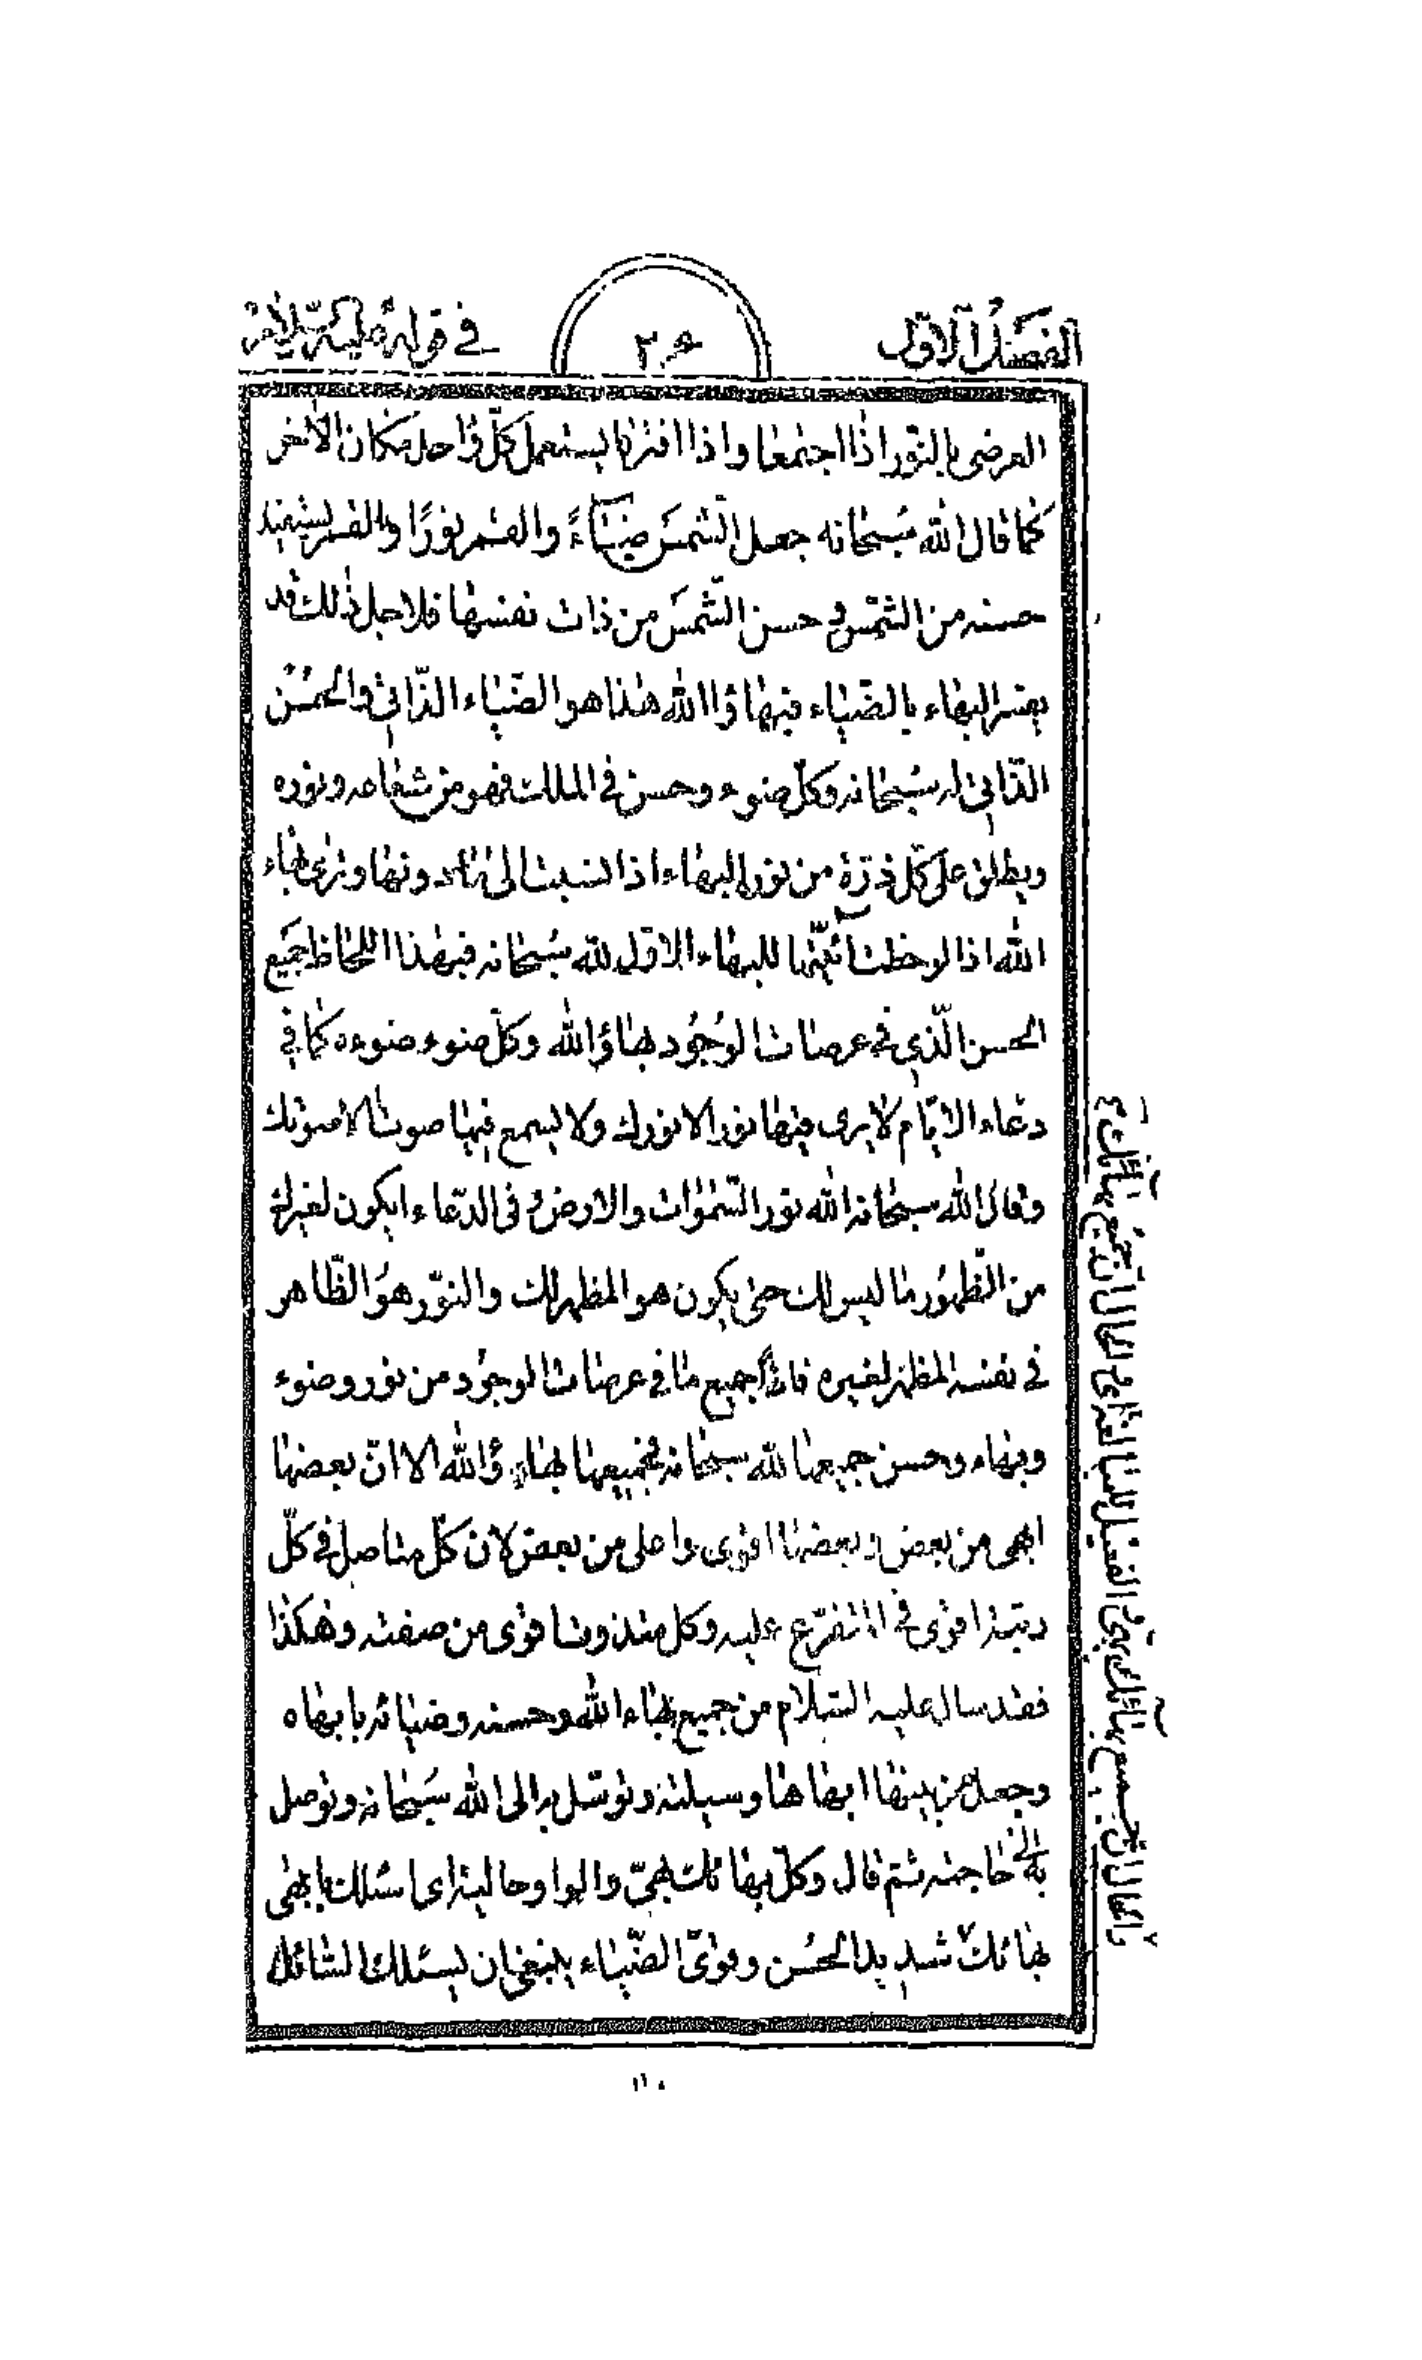 الفصل الاول
في قوله عليه السلام
العرضى بالنور اذا اجتمعا واذا افترقا يستعمل كلّ واحد مكان الاخر
كما قال الله سبحانه جعل الشمس ضياءً والقمر نورًا والقمر يستفيد
حسنه من الشمس و حسن الشمس من ذات نفسها فلاجل ذلك قد
يفسر البهاء بالضياء فبهاؤ الله هذا هو الضياء الذاتي والحسن
الذاتي له سبحانه وكل ضوء وحسن في الملك فهو من شعاعه ونوره
ويطلق على كل ذرة من نور البهاء اذا نسبت الى ما دونها وترى بهاء
الله اذا لوحظت آئيّتها للبهاء الاول لله سبحانه فبهذا اللحاظ جميع
الحسن الّذي في عرصات الوجود بهاؤ الله وكل ضوء ضوءه كما في
دعاء الايّام لا يرى فيها نور الا نورك ولا يسمع فيها صوت الا صوتك
وقال الله سبحانه الله نور السموات والارض و في الدعاء ايكون لغيرك
من الظهور ما ليس لك حتى يكون هو المظهر لك والنور هو الظاهر
في نفسه المظهر لغيره فاذا جميع ما في عرصات الوجود من نور وضوء
وبهاء وحسن جميعها لله سبحانه فجميعها بهاؤ الله الا انّ بعضها
ابهى من بعض وبعضها اقوى واعلى من بعض لان كلّ متاصل في كلّ
رتبة اقوى في المتفرّع عليه وكل منذوت اقوى من صفته وهكذا
فقد سال عليه السلام من جميع بهاء الله وحسنه وضيائه بابهاه
وجعل من بينها ابهاها وسيلته وتوسّل به الى الله سبحانه وتوصل
به الى حاجته ثم قال وكلّ بهائك بهيّ والواو حالية اى اسئلك بابهى
بهائك شديد الحسن وقويّ الضياء ينبغي ان يسئلك السائل
١١٠